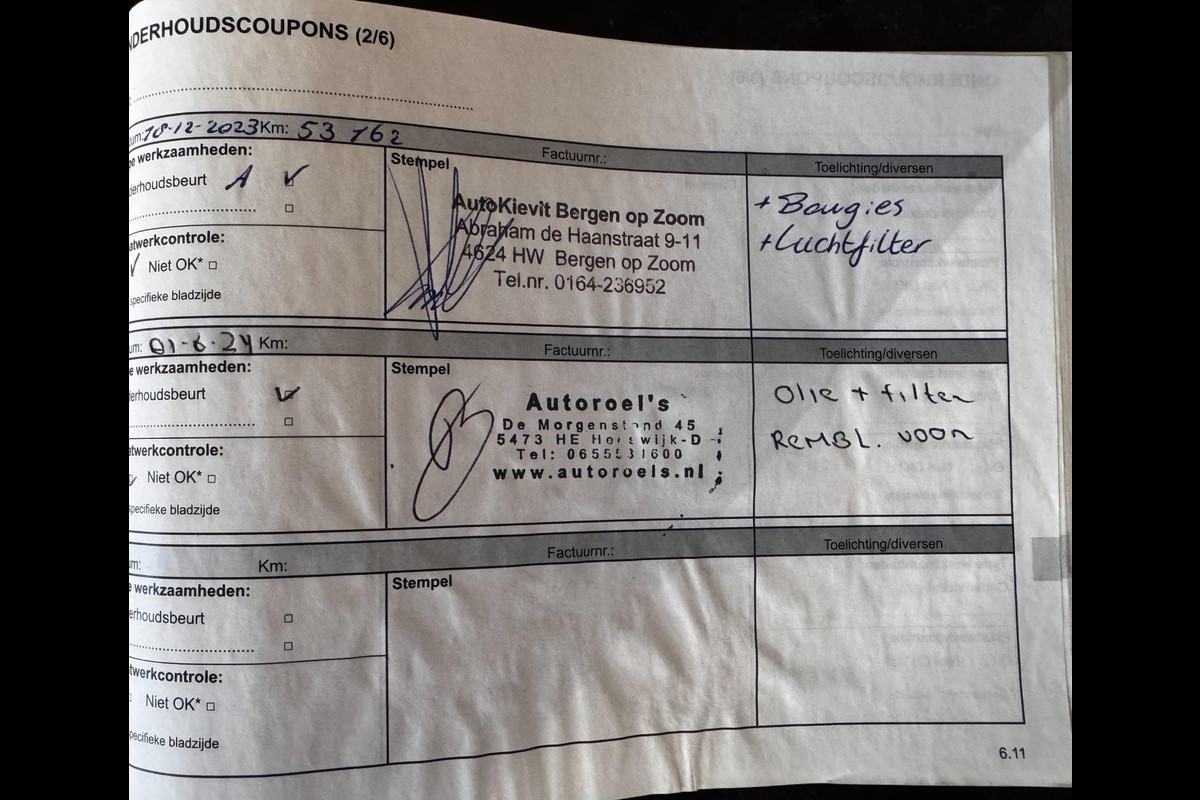 NDERHOUDSCOUPONS (2/6)
um: 18-12-2023 Km: 53 762
Factuurnr.:
Toelichting/diversen
e werkzaamheden:
derhoudsbeurt A
Stempel
AutoKievit Bergen op Zoom
Abraham de Haanstraat 9-11
4624 HW Bergen op Zoom
Tel.nr. 0164-236952
+ Bougies
+ Luchtfilter
atwerkcontrole:
Niet OK*
specifieke bladzijde
um: 01-6-24 Km:
Factuurnr.:
Toelichting/diversen
e werkzaamheden:
erhoudsbeurt
Stempel
Autoroel's
De Morgenstond 45
5473 HE
Tel: 0655531600
www.autoroels.nl
Olie + filter
REMBL. voor
atwerkcontrole:
Niet OK*
specifieke bladzijde
um: Km:
Factuurnr.:
Toelichting/diversen
e werkzaamheden:
erhoudsbeurt
Stempel
twerkcontrole:
Niet OK*
pecifieke bladzijde
6.11